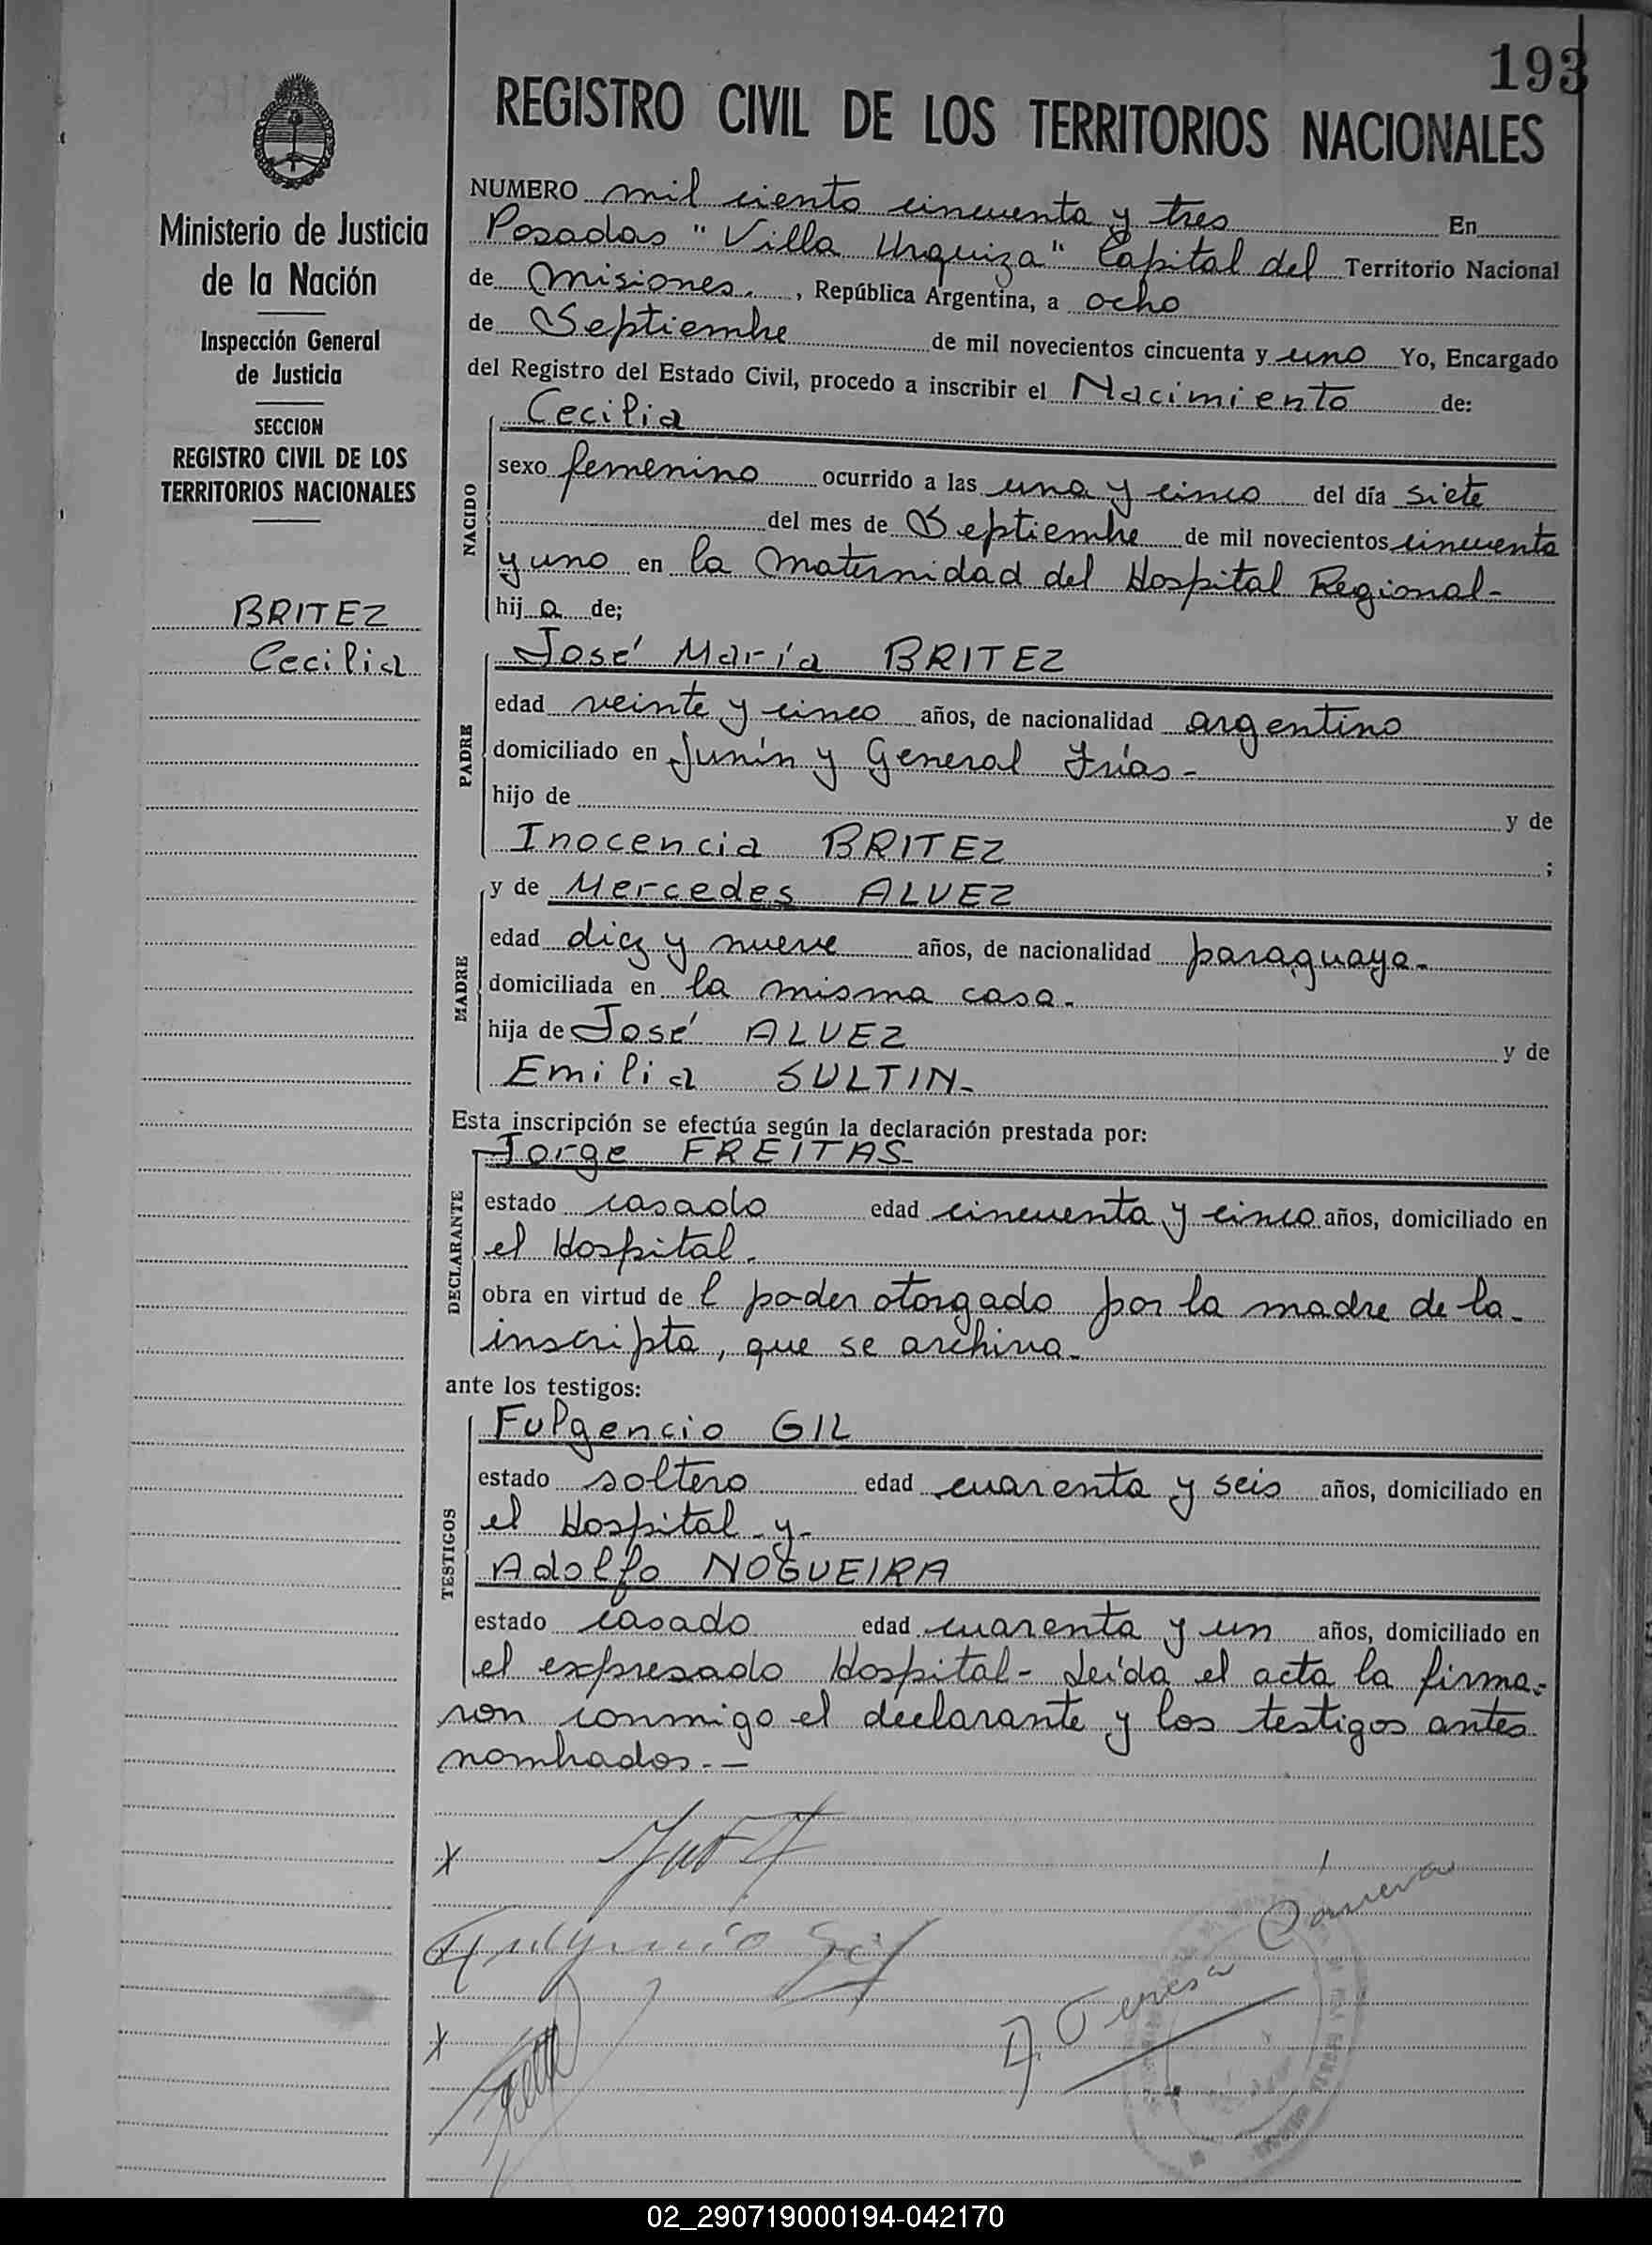 193
REGISTRO CIVIL DE LOS TERRITORIOS NACIONALES
Ministerio de Justicia
de la Nación
Inspección General
de Justicia
SECCION
REGISTRO CIVIL DE LOS
TERRITORIOS NACIONALES
BRITEZ
Cecilia
NUMERO mil ciento cincuenta y tres En
Posadas "Villa Urquiza" Capital del Territorio Nacional
de Misiones. , República Argentina, a ocho
de Septiembre de mil novecientos cincuenta y uno Yo, Encargado
del Registro del Estado Civil, procedo a inscribir el Nacimiento de:
NACIDO
Cecilia
sexo femenino ocurrido a las una y cinco del día siete
del mes de Septiembre de mil novecientos cincuenta
y uno en la Maternidad del Hospital Regional-
hij a de;
PADRE
José María BRITEZ
edad veinte y cinco años, de nacionalidad argentino
domiciliado en Junín y General Frías-
hijo de y de
Inocencia BRITEZ ;
MADRE
y de Mercedes ALVEZ
edad diez y nueve años, de nacionalidad paraguaya-
domiciliada en la misma casa.
hija de José ALVEZ y de
Emilia SULTIN-
Esta inscripción se efectúa según la declaración prestada por:
DECLARANTE
Jorge FREITAS-
estado casado edad cincuenta y cinco años, domiciliado en
el Hospital.
obra en virtud de l poder otorgado por la madre de la-
inscripta, que se archiva-
ante los testigos:
TESTIGOS
Fulgencio GIL
estado soltero edad cuarenta y seis años, domiciliado en
el Hospital-y-
Adolfo NOGUEIRA
estado casado edad cuarenta y un años, domiciliado en
el expresado Hospital- Leída el acta la firma-
ron conmigo el declarante y los testigos antes
nombrados.-
x
Fulgencio Gil
x
Teresa
02_290719000194-042170